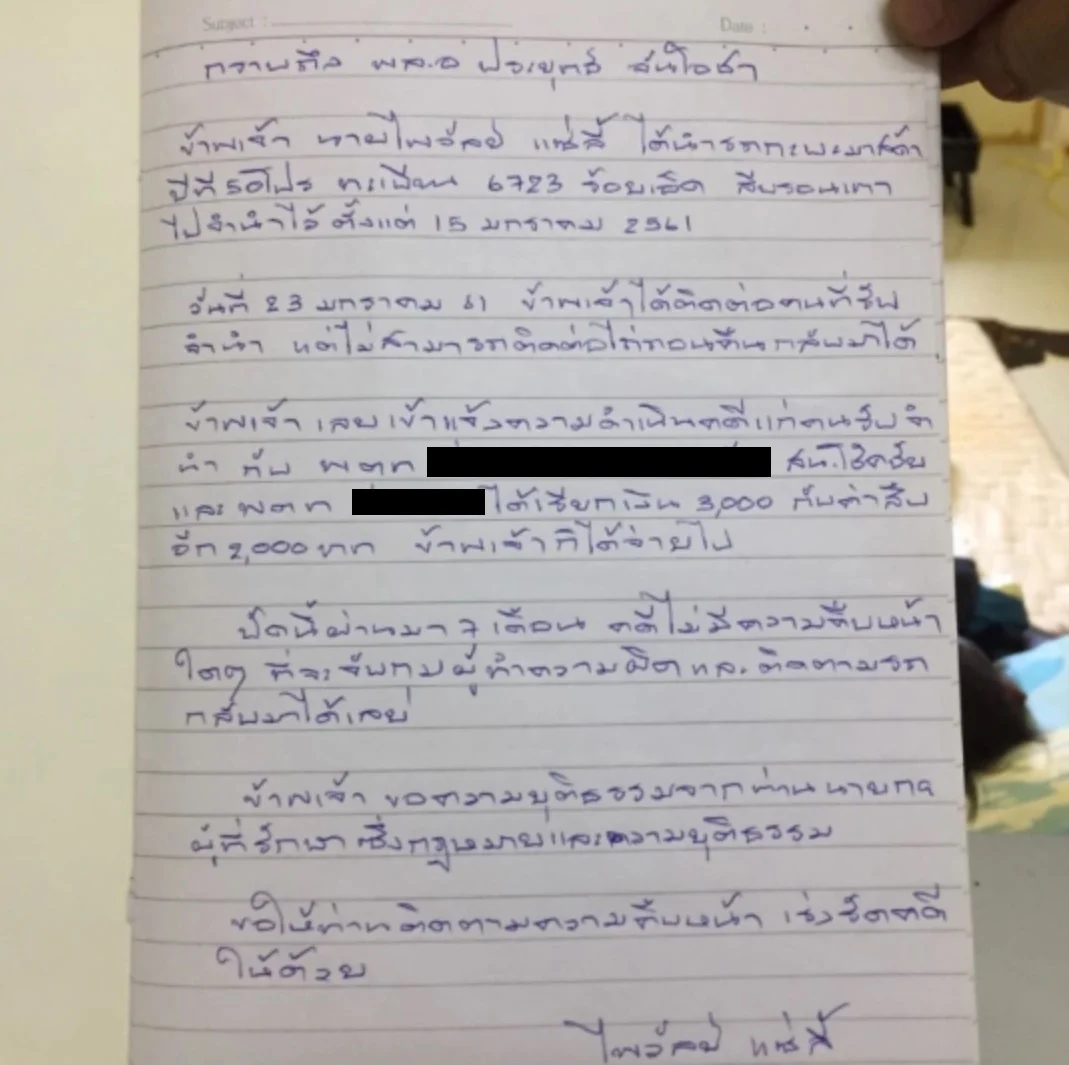 Subject :
Date :
กราบถึง พล.อ ประยุทธ์ จันโอชา
ข้าพเจ้า นายไพวัลย์ แซ่ลี้ ได้นำรถกะบะมาสด้า
บีที 50โปร ทะเบียน 6723 ร้อยเอ็ด สีบรอนเทา
ไปจำนำไว้ ตั้งแต่ 15 มกราคม 2561
วันที่ 23 มกราคม 61 ข้าพเจ้าได้ติดต่อคนที่รับ
จำนำ แต่ไม่สามารถติดต่อไถ่ถอนคืนกลับมาได้
ข้าพเจ้า เลย เข้าแจ้งความดำเนินคดีแก่คนรับจำ
นำ กับ พตท สน.โชคชัย
และ พตท ได้เรียกเงิน 3,000 กับค่าสืบ
อีก 2,000 บาท ข้าพเจ้าก็ได้จ่ายไป
บัดนี้ผ่านมา 7 เดือน คดีไม่มีความคืบหน้า
ใดๆ ที่จะจับกุมผู้ทำความผิด และติดตามรถ
กลับมาได้เลย
ข้าพเจ้า ขอความยุติธรรมจากท่านนายกฯ
ผู้ที่รักษา ซึ่งกฎหมายและความยุติธรรม
ขอให้ท่านติดตามความคืบหน้า เร่งรัดคดี
ให้ด้วย
ไพวัลย์ แซ่ลี้